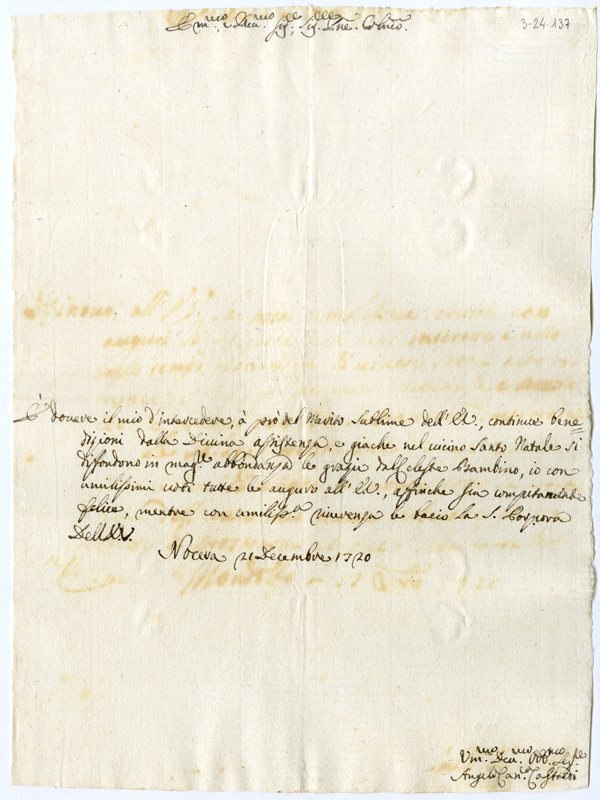 3-24-137
Em.mo, e Rev.mo Sig.re Sig.re P.ne Col.mo
È dovere il mio d'intercedere, à prò del Merito Sublime dell'EV., continue bene=
dizioni dalla Divina assistenza, e giache nel vicino Santo Natale si
difondono in mag.re abbondanza le grazie dall celeste Bambino, io con
umilissimi voti tutte le auguro all'EV., affinche sia compitamente
felice, mentre con umiliss.a riverenza le bacio la S. Porpora
Dell'EV.
Nocera 21 Decembre 1720
Um.mo Dev.mo Obb.mo Se.re
Angelo Can.co